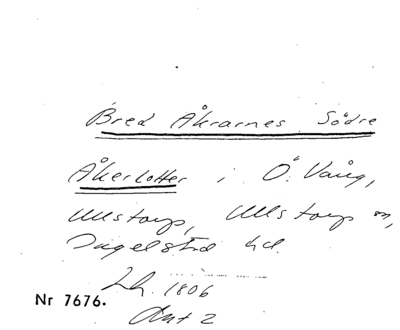 Bred Åkrarnes Södre
Åkerlotter i Ö. Vång,
Ullstorps, Ullstorps sn,
Ingelstad hd.
Lh. 1806
Akt 2
Nr 7676.